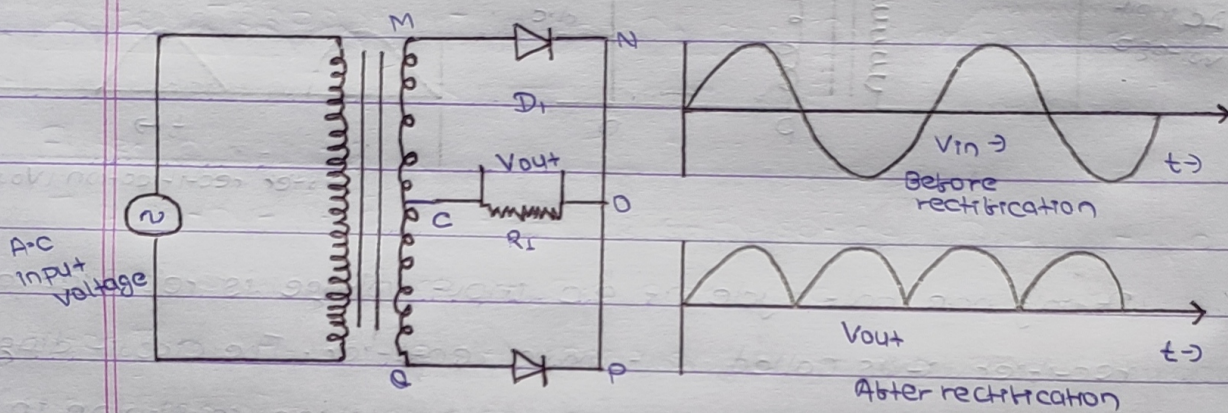 M
N
D1
Vout
C
O
RI
Q
P
~
A.C
input
voltage
Vin →
t →
Before
rectification
Vout
t →
After rectification